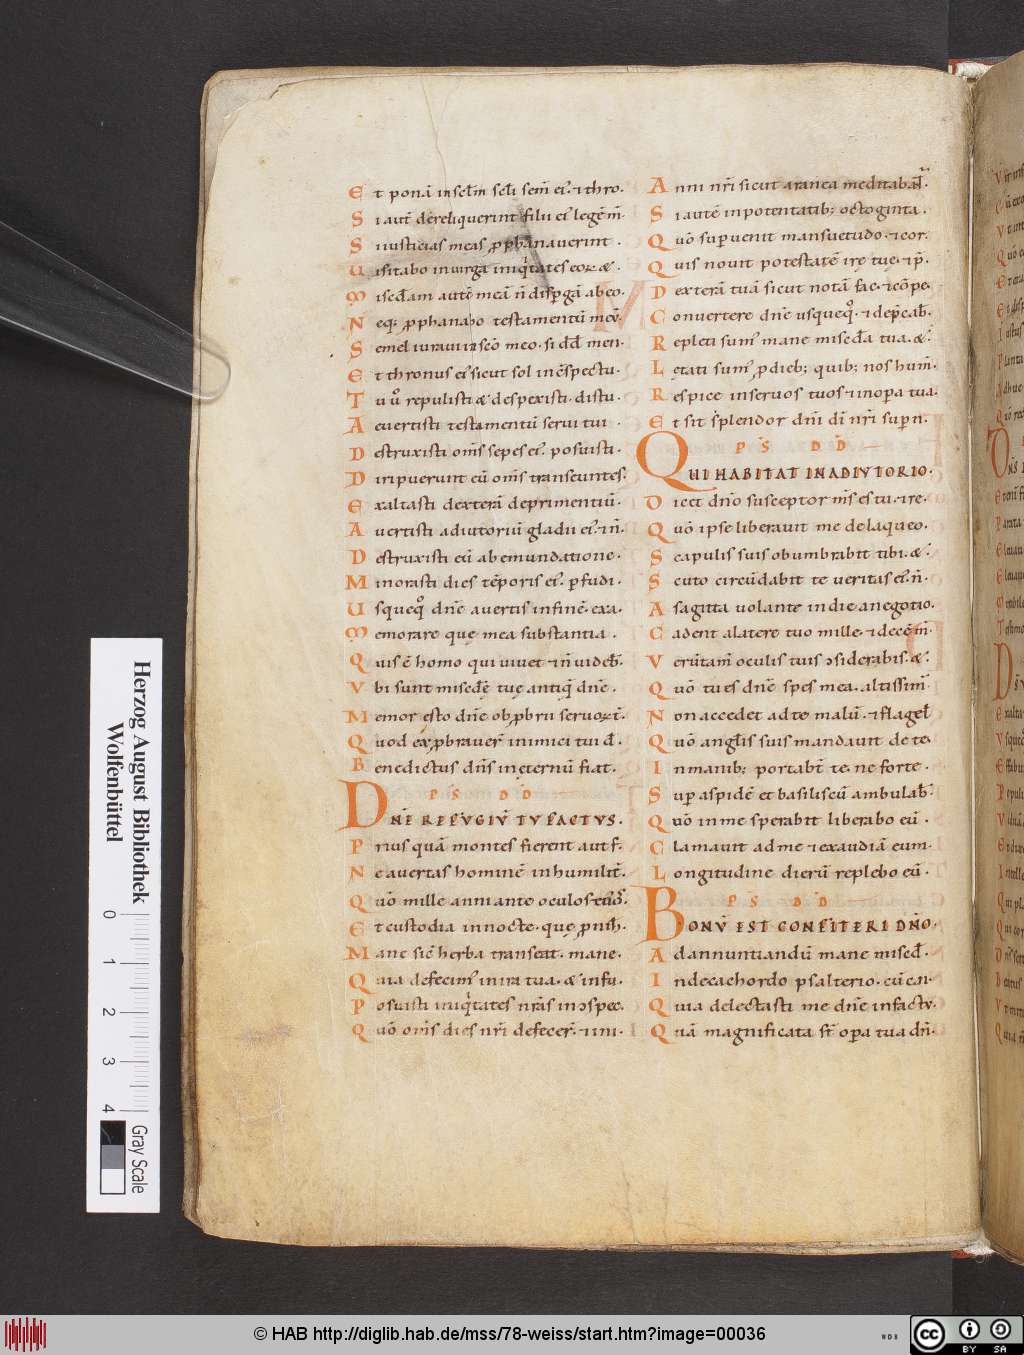 Et ponā in sc̄lm̄ sc̄li sem̄ ei᷒ ⁊ thro·
Si aut̄ dereliquerint filii ei᷒ legē m̄·
Si iusticias meas ꝓphanauerint·
Uisitabo in uirga iniq̇tates eoꝝ &·
Misc̄dam autē meā n̄ disꝑgā ab eo·
Neq; ꝓphanabo testamentū meū·
Semel iuraui in sc̄o meo· si dd̄ men·
Et thronus ei᷒ sicut sol in c̄spectu·
Tu ů repulisti & despexisti· distu·
Auertisti testamentū serui tui·
Destruxisti om̄s sepes ei᷒· posuisti·
Diripuerunt eū om̄s transeuntes·
Exaltasti dexterā deprimentiū·
Auertisti adiutoriū gladii ei᷒· ⁊ n̄·
Destruxisti eū ab emundatione·
Minorasti dies tēporis ei᷒· ꝑfudi·
Usqueq̊ dn̄e auertis in finē· exa·
Memorare quę mea substantia·
Quis ē homo qui uiuet ⁊ n̄ uideb̄·
Vbi sunt misc̄dę tuę antiq̄ dn̄e·
Memor esto dn̄e obꝓbrii seruoꝝ t̄·
Quod exꝓbrauer̄ inimici tui d̄·
Benedictus dn̄s in ęternū fiat·
PS̄ DD̄
DN̄E REFVGIV̄ TV FACTVS·
Prius quā montes fierent aut f·
Ne auertas hominē in humilit̄·
Qūo mille anni ante oculos tuos̄·
Et custodia in nocte· quę ꝓ nih̄·
Mane sic̄ herba transeat· mane·
Quia defecim᷒ in ira tua· & in fu·
Posuisti iniq̇tates nr̄as in ↄspec·
Qūo om̄s dies nr̄i defecer̄· ⁊ in i·
Anni nr̄i sicut aranea meditabāt᷒·
Si autē in potentatib; octoginta·
Qūo supuenit mansuetudo· ⁊ cor·
Quis nouit potestatē irę tuę· ⁊ p̄·
Dexterā tuā sicut notā fac· ⁊ cōpe·
Conuertere dn̄e usqueq̊· ⁊ deꝑcab̄·
Repleti sum᷒ mane misc̄da tua· &·
Lętati sum᷒ ꝓ dieb; quib; nos hum̄·
Respice in seruos tuos ⁊ in opa tua·
Et sit splendor dn̄i dī nr̄i sup n·
PS̄ DD̄
QUI HABITAT IN ADIVTORIO·
Dicet dn̄o susceptor m̄s es tu· ⁊ re·
Qūo ipse liberauit me de laqueo·
Scapulis suis obumbrabit tibi· &·
Scuto circūdabit te ueritas ei᷒· n̄·
A sagitta uolante in die a negotio·
Cadent a latere tuo mille· ⁊ decē m̄·
Verūtam̄ oculis tuis ↄsiderabis· &·
Qūo tu es dn̄e spes mea· altissim̄·
Non accedet ad te malū· ⁊ flagell̄
Qūo angl̄is suis mandauit de te·
In manib; portabt̄ te· ne forte·
Sup aspidē et basiliscū ambulab̄·
Qūo in me sperabit liberabo eū·
Clamauit ad me ⁊ exaudiā eum·
Longitudine dierū replebo eū·
PS̄ DD̄
BONV̄ EST CONFITERI DN̄O·
Ad annuntiandū mane misc̄d̄·
In decachordo psalterio· cū can·
Quia delectasti me dn̄e in factu·
Quā magnificata st̄ opa tua dn̄·
Herzog August Bibliothek
Wolfenbüttel
0 1 2 3 4
Gray Scale
© HAB http://diglib.hab.de/mss/78-weiss/start.htm?image=00036
WDB
cc BY SA